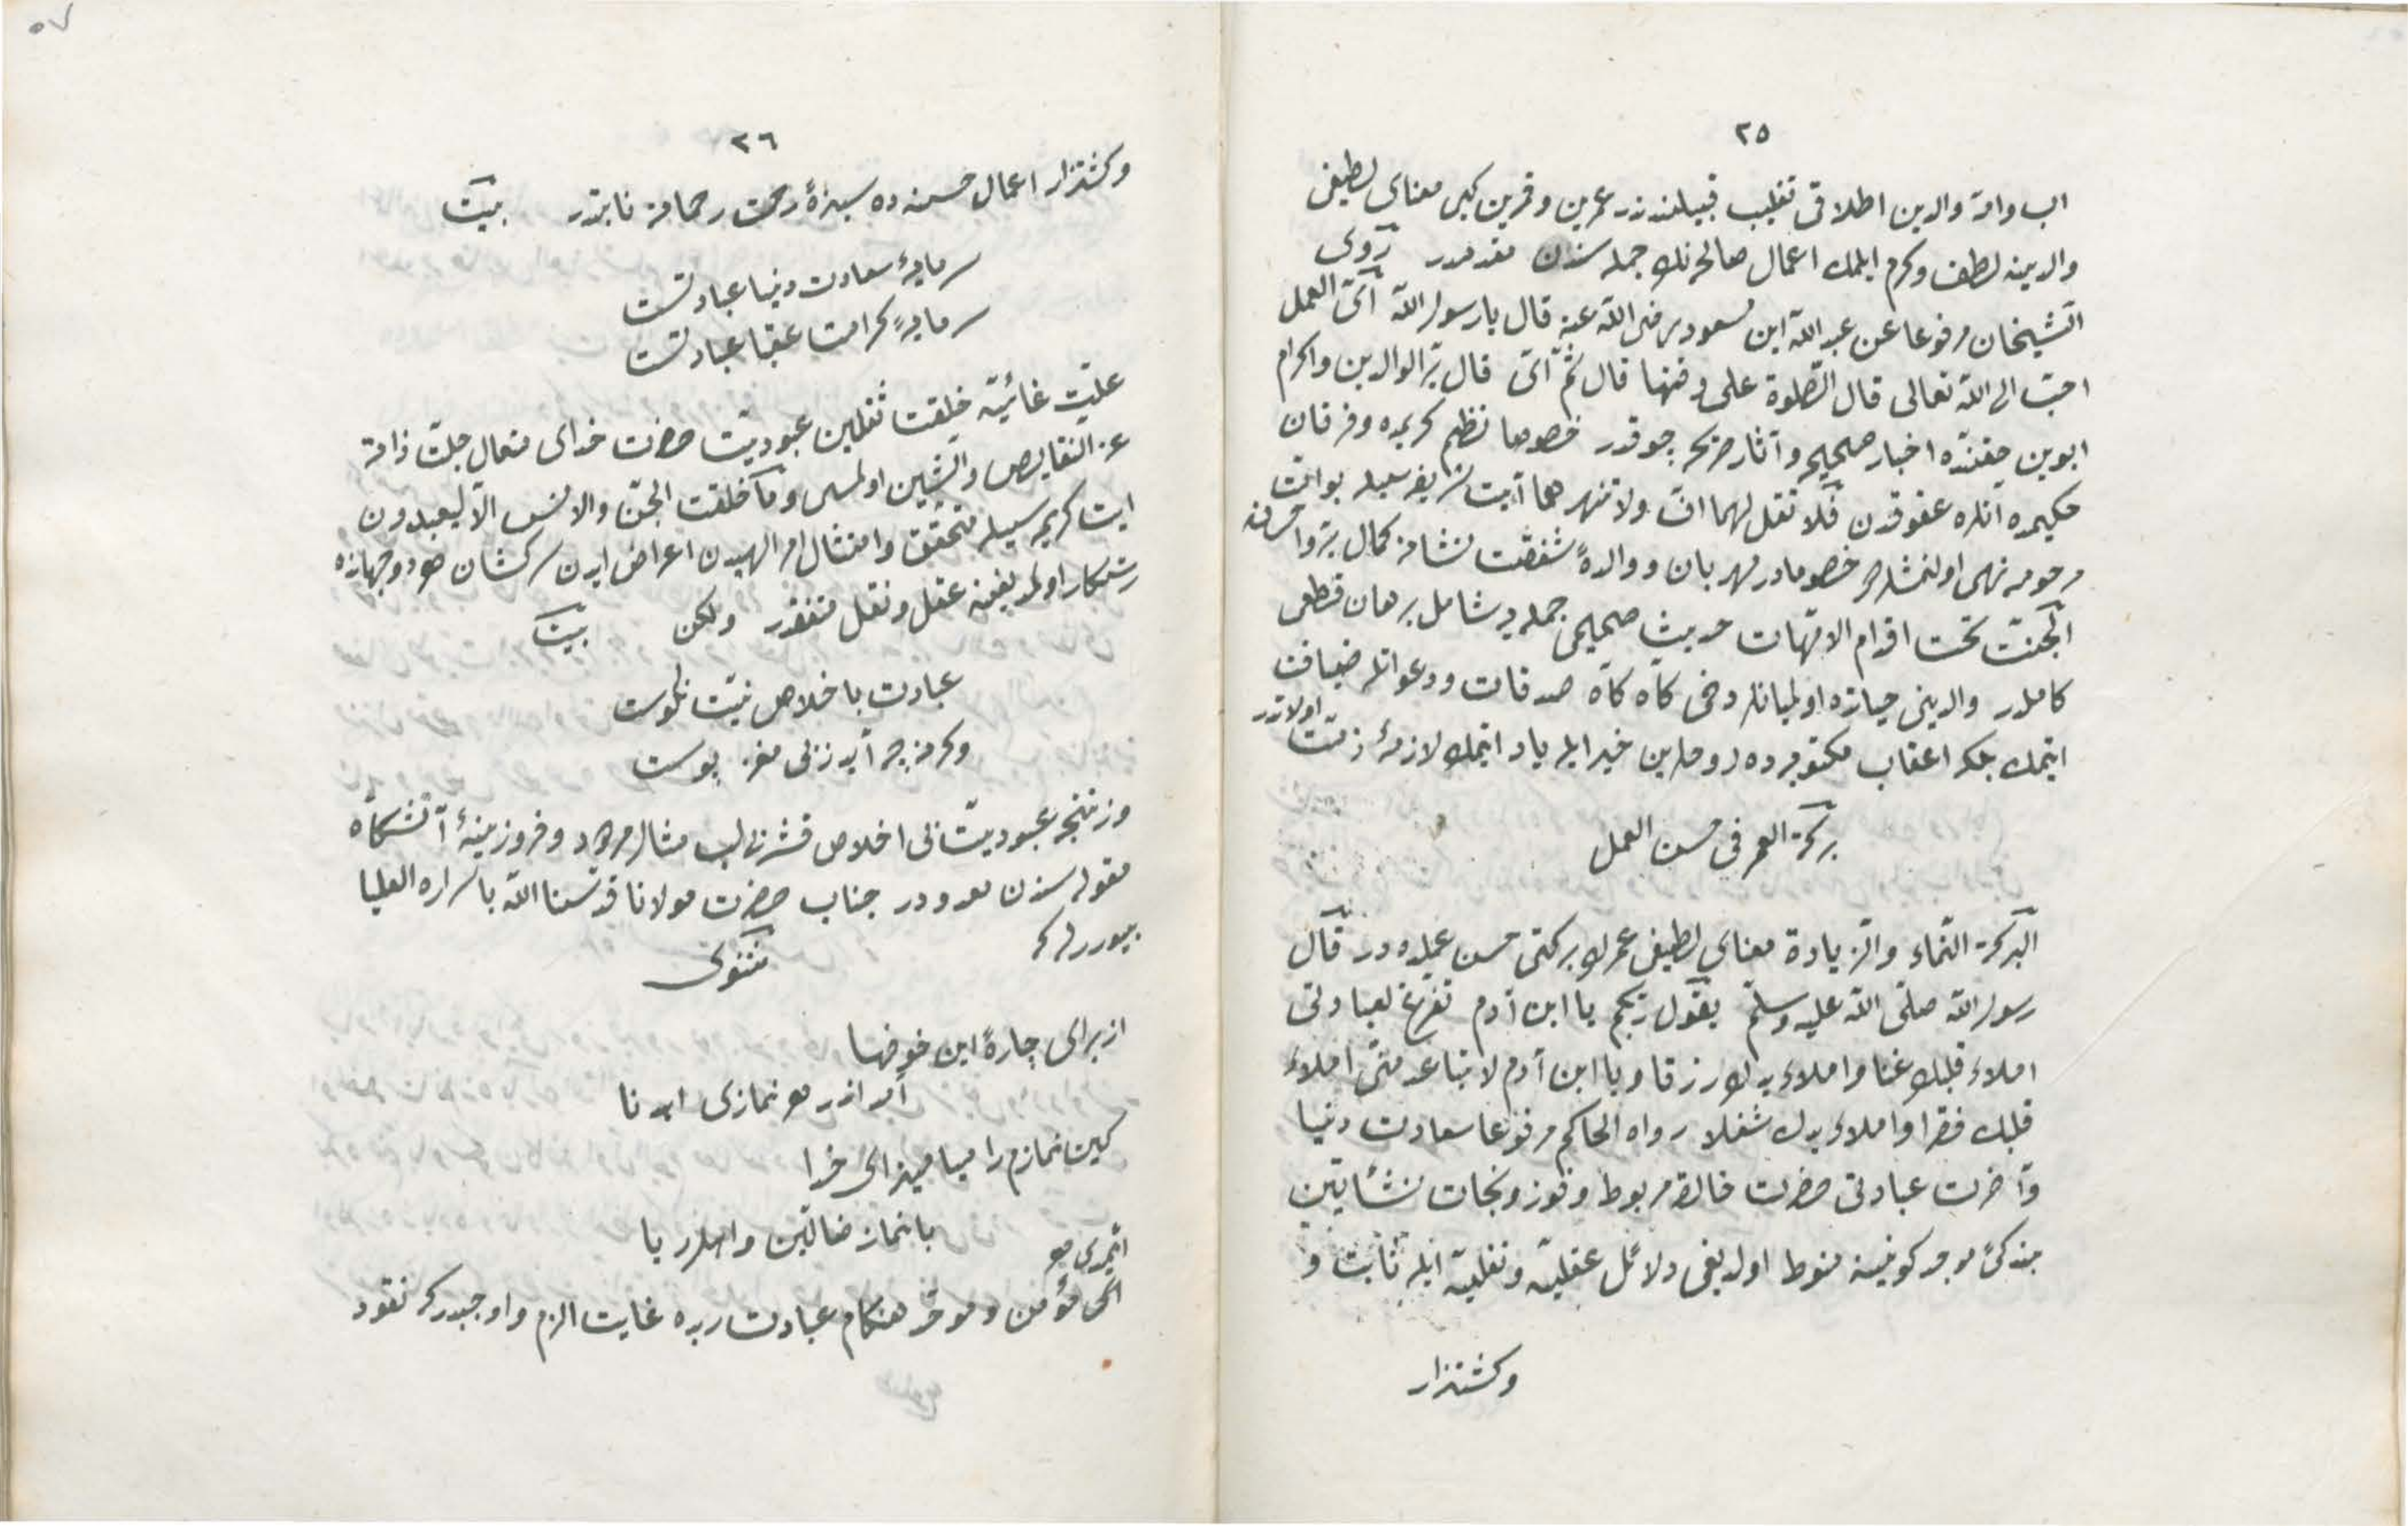 ٢٥
اب وامه والدين اطلاقى تغليب قبيلندندر عمرين وقمرين كبى معناى لطيفى
والدينه لطف وكرم ايلمك اعمال صالحه نك جمله سندن مقدمدر روى
الشيخان مرفوعا عن عبد الله ابن مسعود رضى الله عنه قال يا رسول الله اىّ العمل
احبّ الى الله تعالى قال الصّلوة على وقتها قال ثمّ اىّ قال برّ الوالدين واكرام
ابوين حقنده اخبار صحيحه وآثار صريحه چوقدر خصوصا نظم كريمده وفرقان
حكيمده انلره عقوقدن فلا تقل لهما افّ ولا تنهرهما آيت شريفه سيله بو امّت
مرحومه نهى اولنمشلردر خصوصا در مهربان ووالدۀ شفقت نشانه كمال برّ واحسانه
الجنّت تحت اقدام الامّهات حديث صحيحى جمله يه شامل برهان قطعى
كاملدر والدينى حياتده اولميانلر دخى كاه كاه صدقات ودعواتله ضيافت
ايتمك بلكه اعقاب مكتوبه ده روحلرين خير ايله ياد ايتمك لازمۀ ذمّت اولاندر
بركة العمر فى حسن العمل
البركة النّماء والزّيادة معناى لطيفى عمرك بركتى حسن عملده در قال
رسول الله صلّى الله عليه وسلّم يقول ربّكم يا ابن آدم تفرّغ لعبادتى
املاء قلبك غنا واملاء يدك رزقا ويا ابن آدم لا تباعد منّى املاء
قلبك فقرا واملاء يدك شغلا رواه الحاكم مرفوعا سعادت دنيا
وآخرت عبادتى حضرت خالقه مربوط وفوز ونجات نشأتين
بندكىّ موجد كونينه منوط اولديغى دلائل عقليّه ونقليّه ايله ثابت و
وكشتزار
٢٦
وكشتزار اعمال حسنه ده سبزۀ رحمت رحمانه نابتدر بيت
سرمايۀ سعادت دنيا عبادتست
سرمايۀ كرامت عقبا عبادتست
علّت غائيّه خلقت ثقلين عبوديّت حضرت خداى متعال جلّت ذاته
عن النقايص والشّين اولمسى وما خلقت الجنّ والانس الّا ليعبدون
ايت كريمه سيله متحقّق وامتثال امر الهيدن اعراض ايدن سركشان هر دو جهانده
رستكار اولمديغنه عقل ونقل متفقدر ولكن بيت
عبادت باخلاص نيّت نكوست
وكرنه چه آيد ز بى مغز پوست
وزننجه عبوديّت بى اخلاص قشر بى لب مثال مردود وفروزينۀ آتشكاه
مقوله سندن معدوددر جناب حضرت مولانا قدّسنا الله باسراره العليا
بيوررلركه
مثنوى
از براى چارۀ اين خوفها
آمد اندر هر نمازى اهدنا
كين نمازم را مياميز اى خدا
با نماز ضالّين واهل ريا
ايمدى هر
اكى مؤمن وموحّد هنكام عبادت ربده غايت الزم واوجبدركه نقود